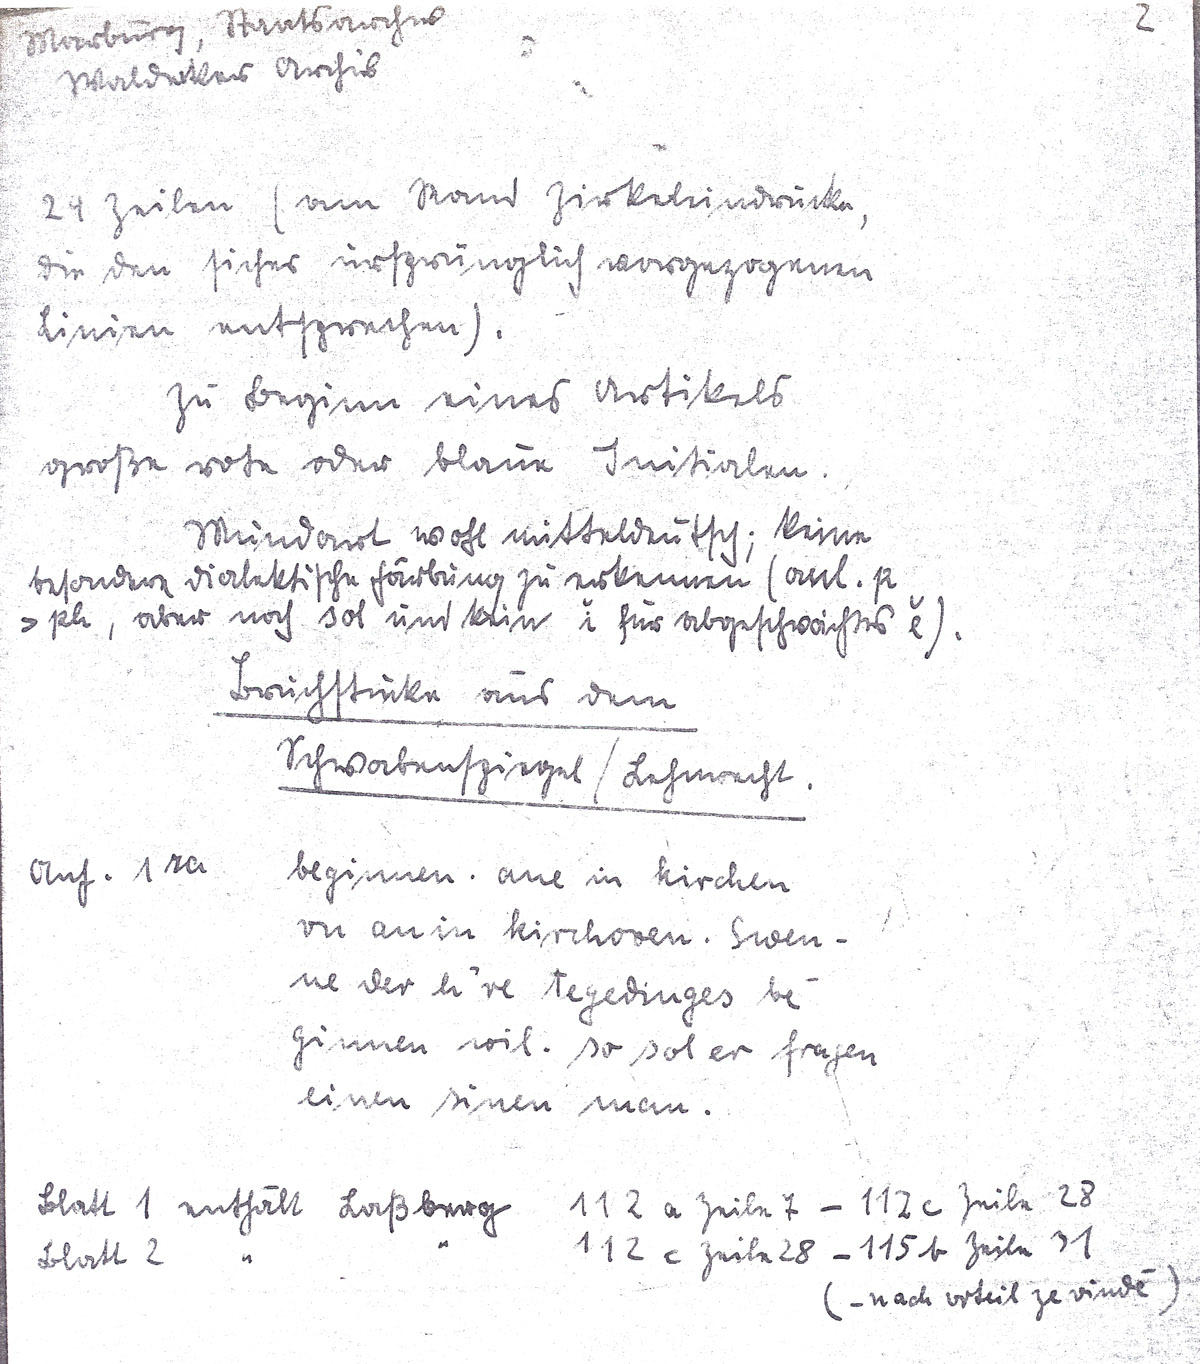 Marburg, Staatsarchiv 2
Waldecker Archiv
24 Zeilen (am Rand Zirkeleindrücke,
die den sicher ursprünglich vorgezogenen
Linien entsprechen).
Zu Beginn eines Artikels
große rote oder blaue Initialen.
Mundart wohl mitteldeutsch; keine
besondere dialektische Färbung zu erkennen (anl. p
> ph, aber noch sol und kein i für abgeschwächtes ĕ).
Bruchstücke aus dem
Schwabenspiegel / Lehnrecht.
Anf. 1ra beginnen. ane in kirchen
vn an in kirchoven. Swen-
ne der h're tegedinges be-
ginnen wil. so sol er fragen
einen sinen man.
Blatt 1 enthält Laßberg 112 a Zeile 7 – 112 c Zeile 28
Blatt 2 " " 112 c Zeile 28 – 115 b Zeile 31
(– nach vrteil ze vindē)